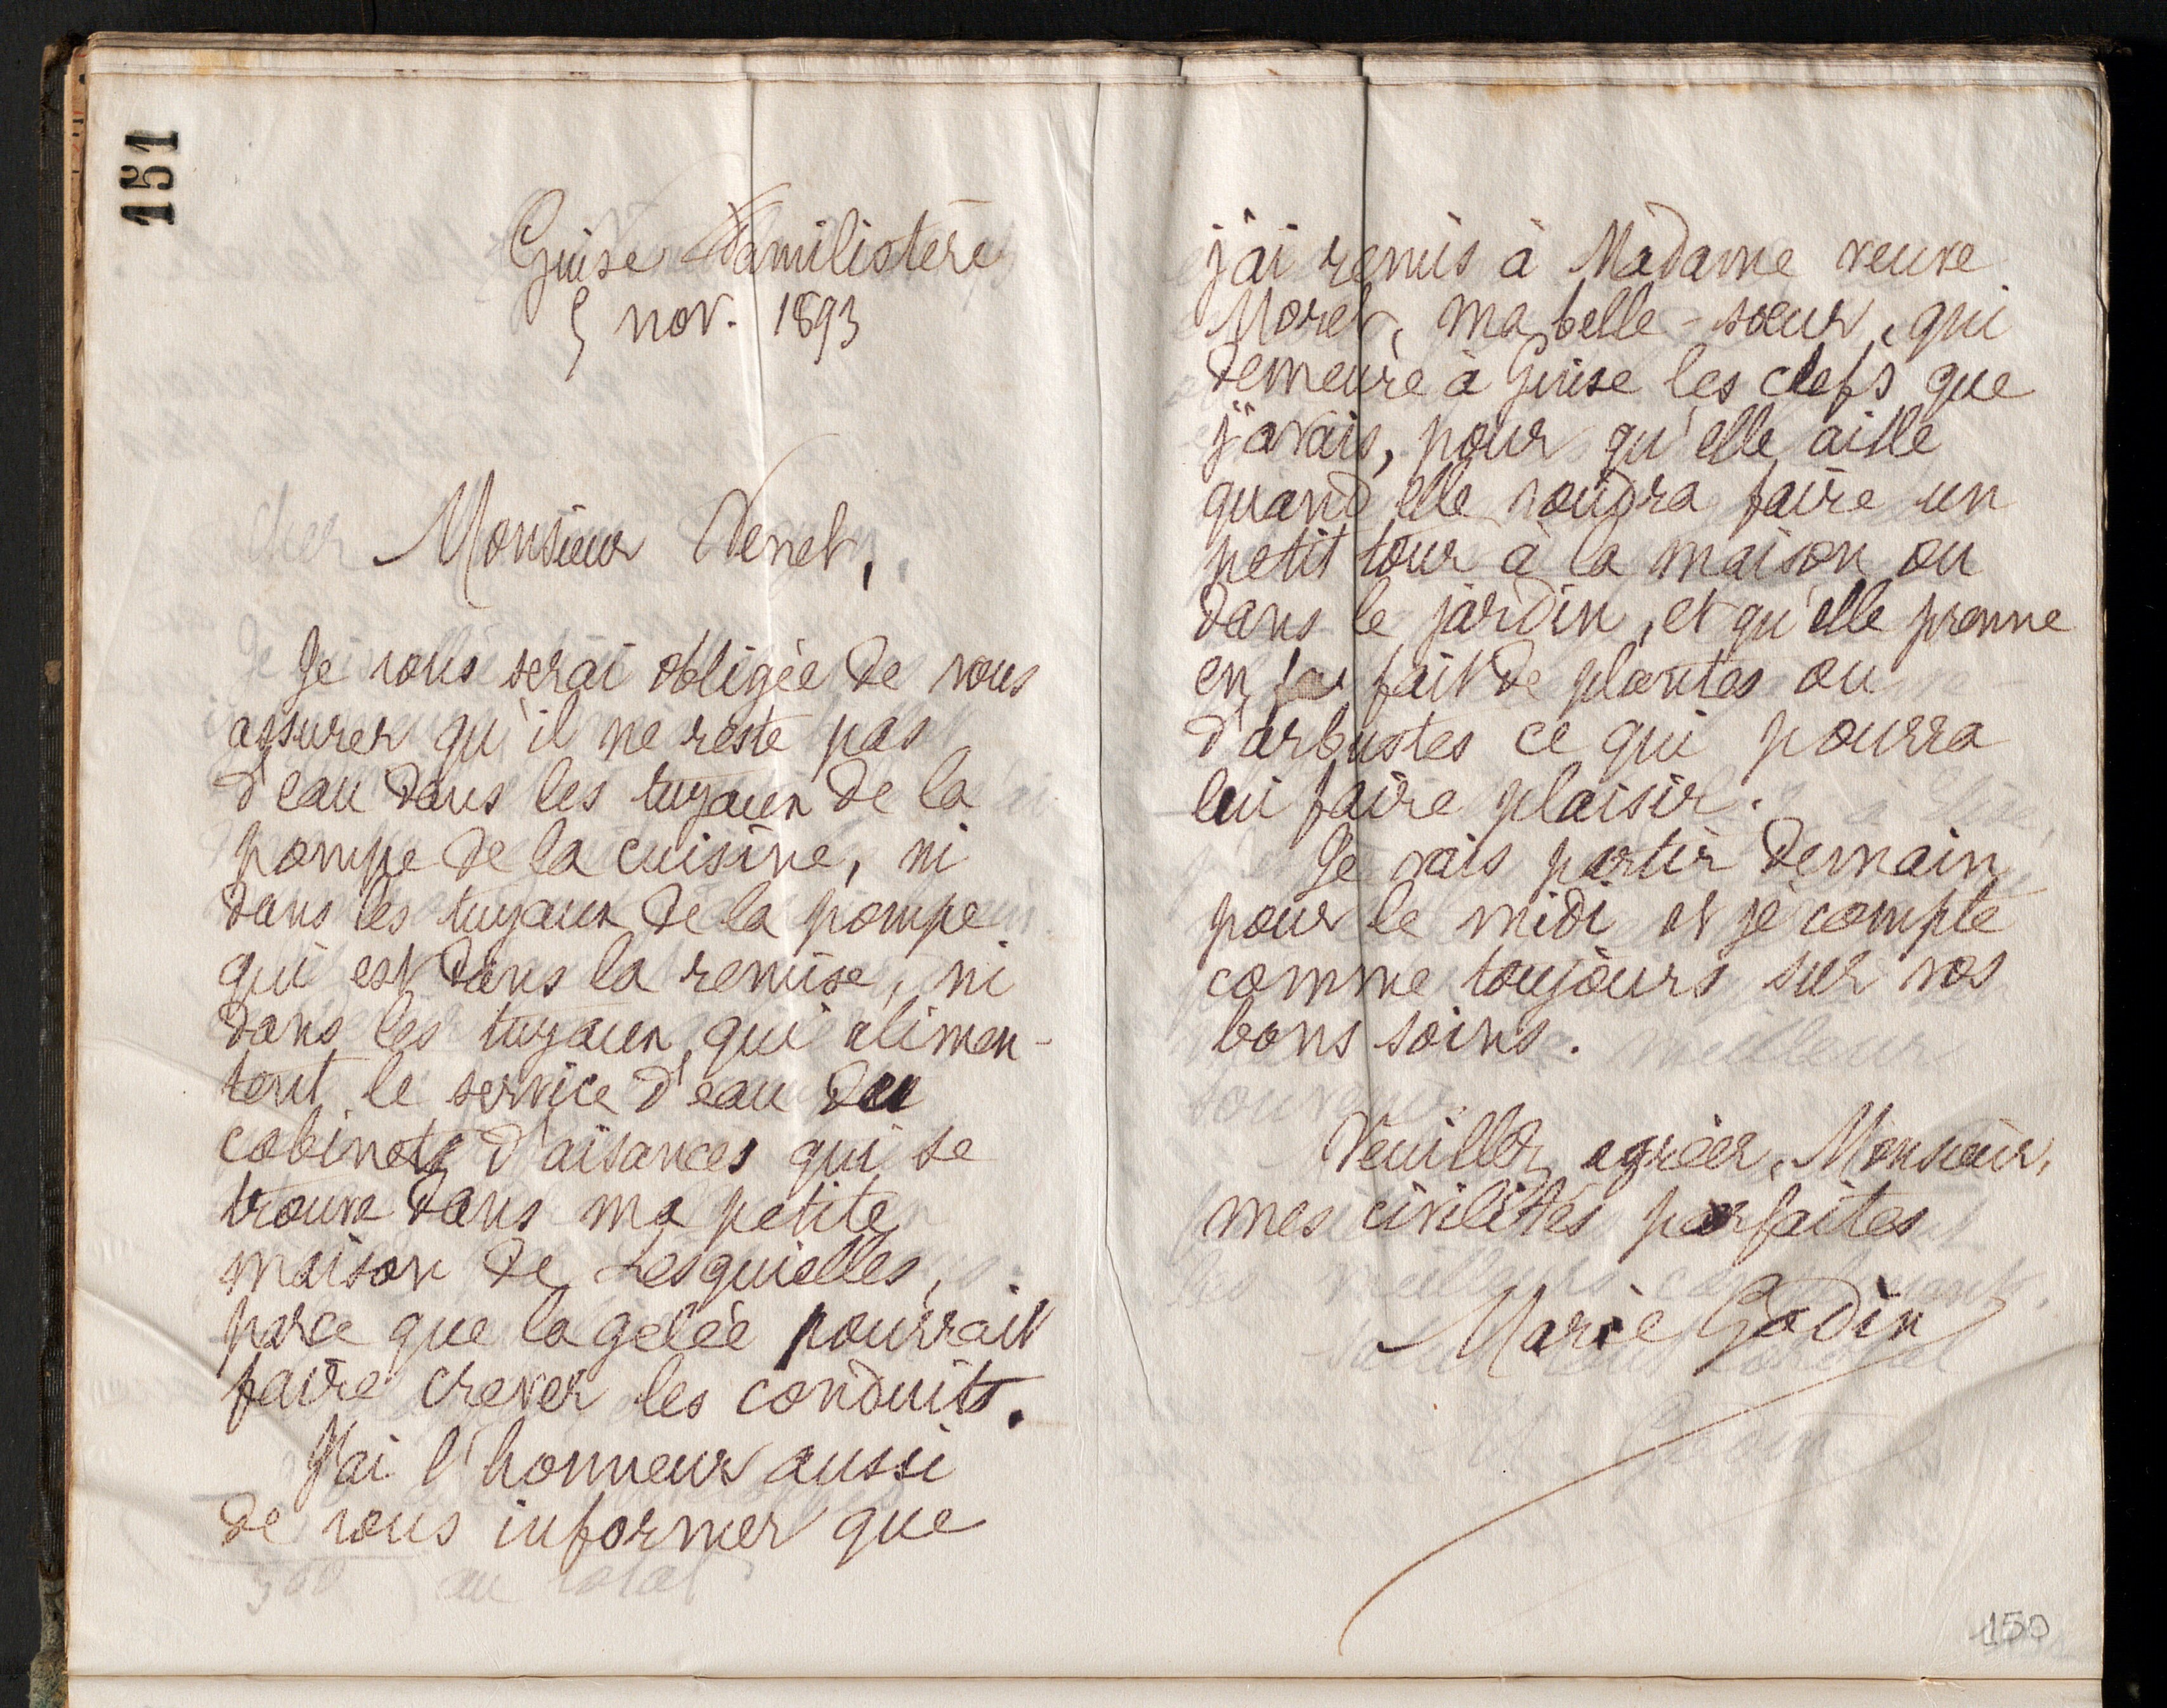 151
Guise Familistère
5 nov. 1893
Monsieur Venet,
Je vous serai obligée de vous
assurer qu'il ne reste pas
d'eau dans les tuyaux de la
pompe de la cuisine, ni
dans les tuyaux de la pompe
qui est dans la remise, ni
dans les tuyaux qui alimen-
tent le service d'eau du
cabinets d'aisances qui se
trouve dans ma petite
maison de Lesquielles,
parce que la gelée pourrait
faire crever les conduits.
J'ai l'honneur aussi
de vous informer que
j'ai remis à Madame veuve
Moret, ma belle-sœur, qui
demeure à Guise les clefs que
j'avais, pour qu'elle aille
quand elle voudra faire un
petit tour à la maison ou
dans le jardin, et qu'elle prenne
en fait de plantes ou
d'arbustes ce qui pourra
lui faire plaisir.
Je vais partir demain
pour le midi et je compte
comme toujours sur vos
bons soins.
Veuillez agréer, Monsieur,
mes civilités parfaites
Marie Godin
150